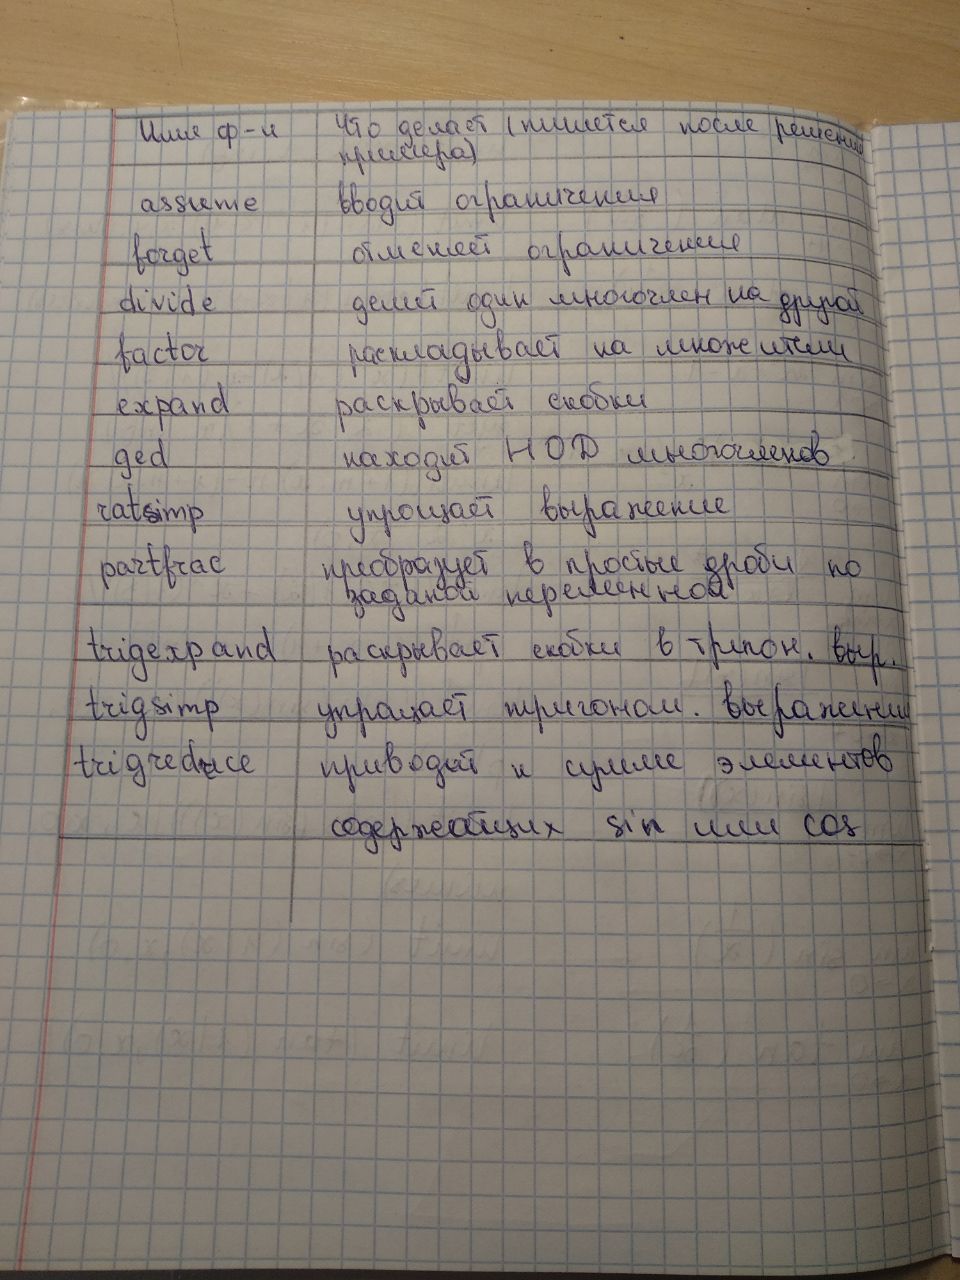 Имя ф-и Что делает (пишется после решения
примера)
assume вводит ограничения
forget отменяет ограничения
divide делит один многочлен на другой
factor раскладывает на множители
expand раскрывает скобки
gcd находит НОД многочленов
ratsimp упрощает выражение
partfrac преобразует в простые дроби по
заданой переменной
trigexpand раскрывает скобки в тригон. выр.
trigsimp упращает тригоном. выражения
trigreduce приводит к сумме элементов
содержащих sin или cos